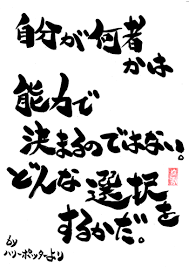 自分が何者
かは
能力で
決まるのではない。
どんな選択を
するかだ。
by
ハリーポッターより